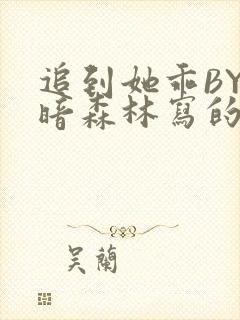 追到她乖BY
暗森林寫的
吴蘭